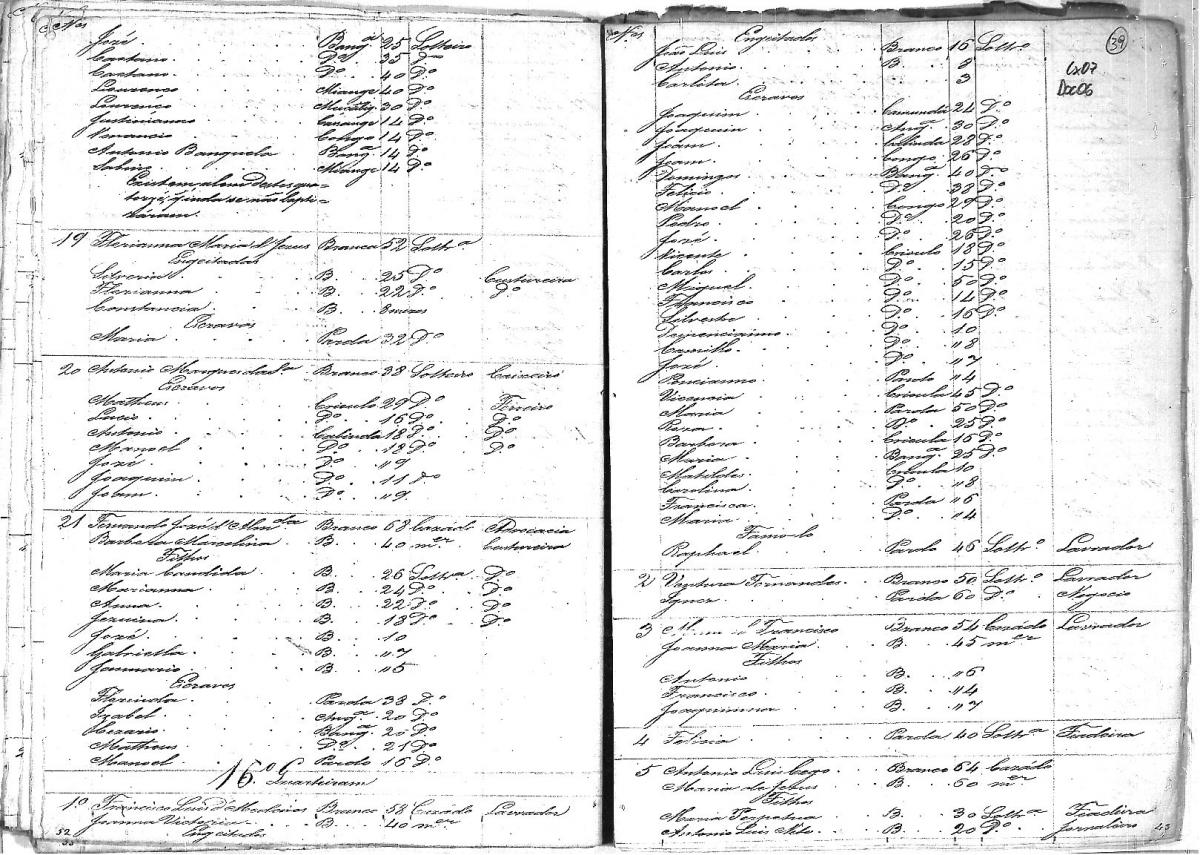 Nos
José Bangª 25 Solteiro
Caetano Dº 35 Dº
Caetano Dº 40 Dº
Lourenco 40 Dº
Lourenco 30 Dº
Justiniano 14 Dº
Venancio Congo 14 Dº
Antonio Banguela Bangª 14 Dº
Sabino 14 Dº
Existem alem destes qua-
torze, q' inda se não bapti-
záram.
19 Florianna Maria d'Jezus Branca 52 Soltrª
Engeitados
Silveria B. 25 Dº Custureira
Florianna B. 22 Dº Dº
Constancia B. 8 mezes
Escravos
Maria Parda 32 Dº
20 Antonio Marques Branco 38 Solteiro Caixeiro
Escravos
Matheus Crioulo 29 Dº Ferreiro
Lucio Dº 16 Dº Dº
Antonio Cabinda 18 Dº Dº
Manoel Dº 18 Dº Dº
José Dº "9
Joaquim Dº 11 Dº
Joam Dº "9
21 Fernando José d'Almda Branco 68 Cazado Advocacia
Barbara Marcolina B. 40 mer Custureira
Filhos
Maria Candida B. 26 Soltrª Dº
Marianna B. 24 Dº Dº
Anna B. 22 Dº Dº
B. 18 Dº Dº
José B. 10
Gabriella B. "7
Januario B. "5
Escravos
Florinda Parda 38 Dº
Izabel Angª 20 Dº
Cezario Bangª 20 Dº
Matheus Dº 21 Dº
Manoel Pardo 16 Dº
16º Quarteiram
1º Francisco Luis d'Medeiros Branco 58 Cazado Lavrador
Joanna Victoria B. 40 mer
Engeitado
52
53
Nos Engeitados
39
Cx07
Doc06
João Luis Branco 15 Soltrº
Antonio B. 9
Carlita 3
Escravos
Joaquim Camundá 24 Dº
Joaquim Angª 30 Dº
Joam Cabinda 28 Dº
Joam Congo 26 Dº
Domingos Bangª 40 Dº
Felicio Dº 38 Dº
Manoel Congo 29 Dº
Pedro Dº 20 Dº
José Dº 26 Dº
Vicente Crioulo 18 Dº
Carlos Dº 15 Dº
Miguel Dº 50 Dº
Francisco Dº 14 Dº
Silvestre Dº 16 Dº
Dº 10
Camillo Dº "8
José Dº "7
Poncianno Pardo "4
Vicencia Crioula 45 Dº
Maria Parda 50 Dº
Roza Dº 25 Dº
Barbara Crioula 15 Dº
Maria Bangª 25 Dº
Matildes Crioula 10
Carolina Dº "8
Francisca Parda "6
Maria Dº "4
Famolo
Raphael Pardo 46 Soltrº Lavrador
2 Ventura Fernandes Branco 50 Soltrº Lavrador
Ignez Parda 60 Dº Negocio
3 Francisco Branco 54 Cazado Lavrador
Joanna Maria B. 45 mer
Filhos
Antonio B. "6
Francisco B. "4
Joaquinna B. "7
4 Felicia Parda 40 Soltrª Fiadeira
5 Antonio Luis Cego Branco 64 Cazado
Maria de Jesus B. 60 mer
Filhos
Maria Perpetua B. 30 Soltrª Fiadeira
Antonio Luis B. 20 Dº Jornaleiro
43